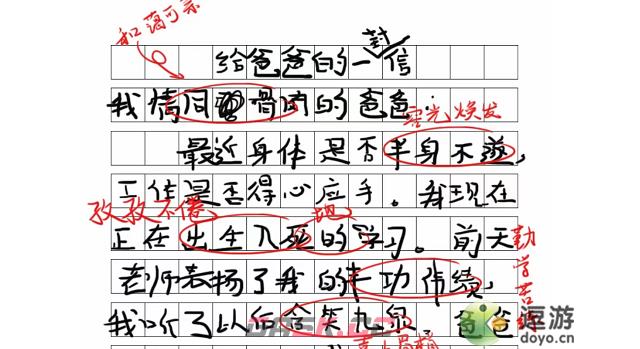 和蔼可亲
封
给爸爸的一信
我情同骨肉的爸爸：
容光焕发
最近身体是否半身不遂，
工作是否得心应手。我现在
孜孜不倦 地
正在出生入死的学习。前天
勤学苦练
老师表扬了我的丰功伟绩，
我听了以后含笑九泉，爸爸
逗游
doyo.cn